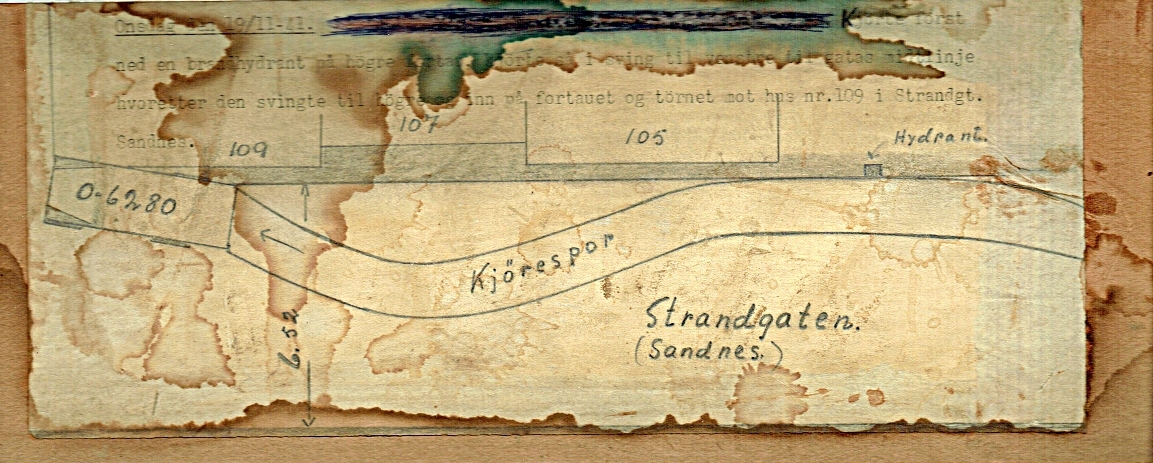 Onsdag den 19/11-41. Kjørte først
ned en brandhydrant på høgre fortau, kjørte så i sving til venstre til gatas midtlinje
hvoretter den svingte til høgre og inn på fortauet og törnet mot hus nr.109 i Strandgt.
Sandnes.
109
107
105
Hydrant.
O-6280
Kjörespor
6.52
Strandgaten.
(Sandnes.)